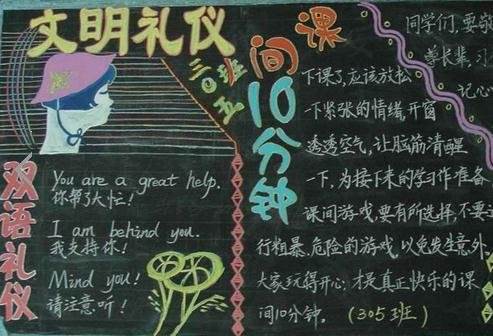 文明礼仪
三〇五班
双语礼仪
You are a great help.
你帮了大忙!
I am behind you.
我支持你!
Mind you!
请注意听!
课间10分钟
下课了,应该放松
一下紧张的情绪,开窗
透透空气,让脑筋清醒
一下,为接下来的学习作准备.
课间游戏,要有所选择,不要
行粗暴、危险的游戏,以免发生意外.
大家玩得开心,才是真正快乐的课
间10分钟。(305班)
同学们,要敬
尊长辈,习
记心